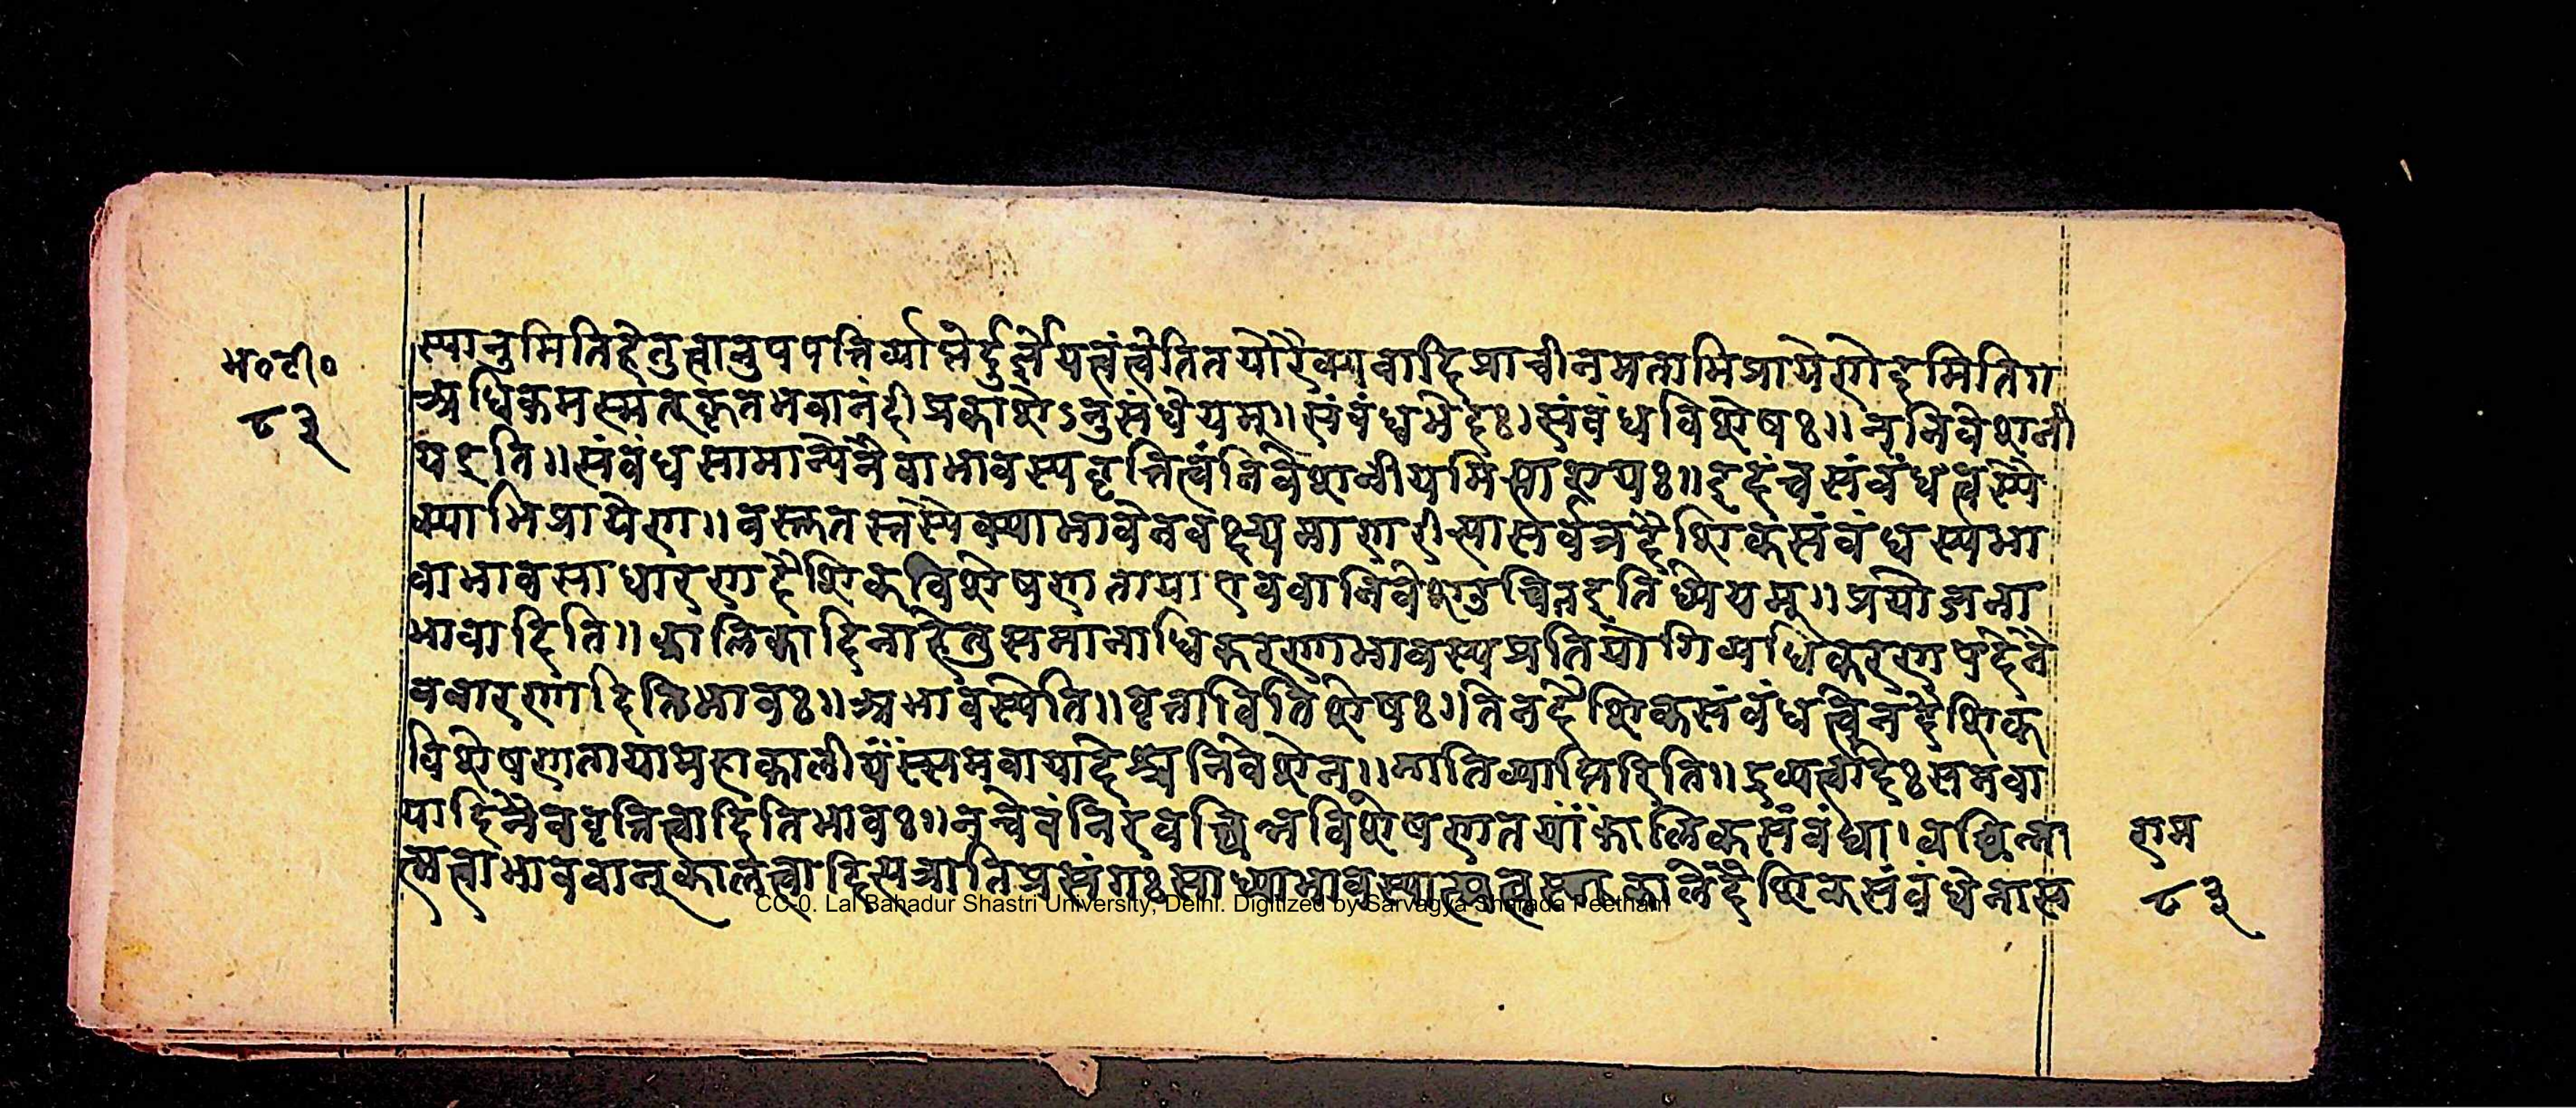 भ०टी०
८३
स्यानुमितिहेतुत्वानुपपत्तिर्व्याप्तेर्दुर्ज्ञेयत्वं चेति तयोरैक्य वादिप्राचीनमताभिप्रायेणेदमिति॥
अधिकमस्मत्कृतभवानंदीप्रकाशेऽनुसंधेयम्॥ संबंधभेदः। संबंधविशेषः॥ न निवेशनी
य इति॥ संबंधसामान्येनैवाभावस्य वृत्तित्वं निवेशनीयमित्याशयः॥ इदं च संबंधत्वस्यै
क्याभिप्रायेण॥ वस्तुतस्तस्यैक्याभावेन वक्ष्यमाणरीत्या सर्वत्र दैशिकसंबंधस्य भा
वाभावसाधारणदैशिकविशेषणताया एव वा निवेश उचित इति ध्येयम्॥ प्रयोजना
भावादिति॥ कालिकादिना हेतुसमानाधिकरणाभावस्य प्रतियोगिव्यधिकरणपदेनै
व वारणादिति भावः॥ अभावस्येति॥ वृत्ताविति शेषः। तेन दैशिकसंबंधत्वेन दैशिक
विशेषणताया महाकालीयं समवायादेश्च निवेशेन॥ नातिव्याप्तिरिति॥ द्रव्यत्वादेः समवा
यादिनैव वृत्तित्वादिति भावः॥ नन्वेवं निरवच्छिन्नविशेषणतया कालिकसंबंधा। वच्छिन्ना
त्मत्वाभाववान् कालत्वादित्यत्रातिप्रसंगः साध्याभावस्यात्मत्वस्य काले दैशिकसंबंधेनास
राम
८३
CC-0. Lal Bahadur Shastri University, Delhi. Digitized by Sarvagya Sharada Peetham